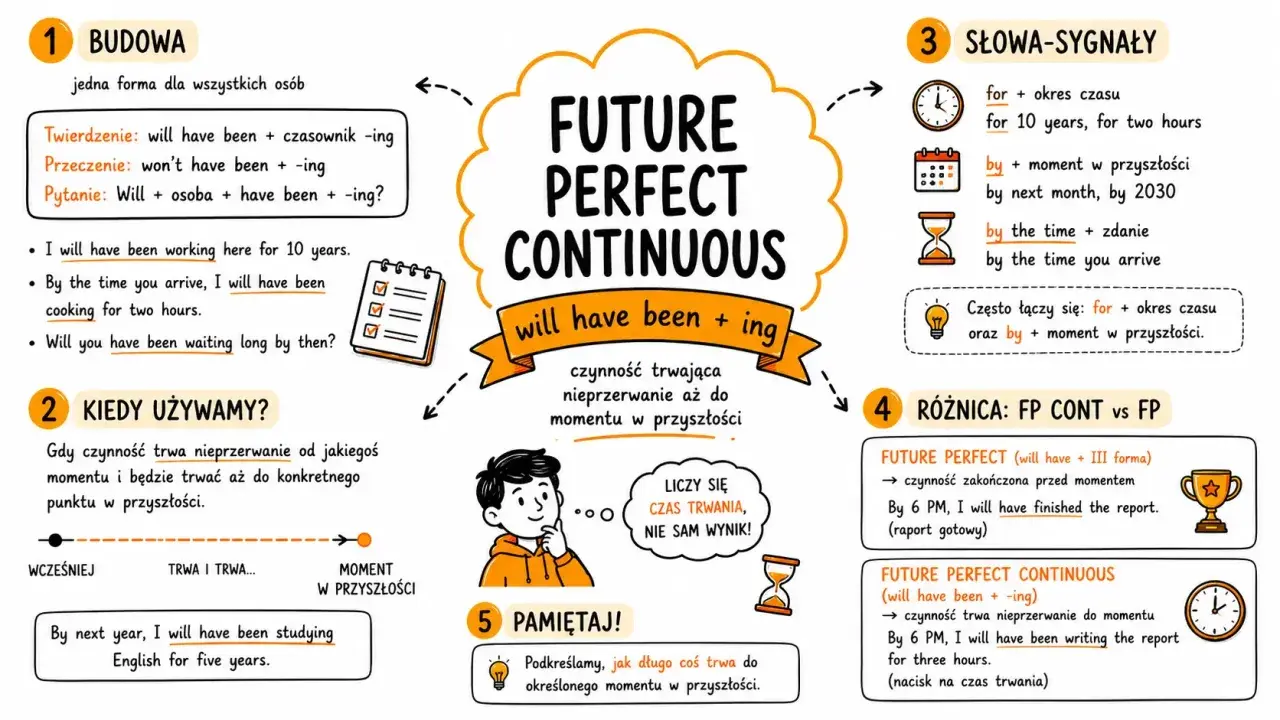 1 BUDOWA
jedna forma dla wszystkich osób
Twierdzenie: will have been + czasownik -ing
Przeczenie: won't have been + -ing
Pytanie: Will + osoba + have been + -ing?
• I will have been working here for 10 years.
• By the time you arrive, I will have been
cooking for two hours.
• Will you have been waiting long by then?
2 KIEDY UŻYWAMY?
Gdy czynność trwa nieprzerwanie od jakiegoś
momentu i będzie trwać aż do konkretnego
punktu w przyszłości.
WCZEŚNIEJ
TRWA I TRWA...
MOMENT
W PRZYSZŁOŚCI
By next year, I will have been studying
English for five years.
FUTURE
PERFECT
CONTINUOUS
will have been + ing
czynność trwająca
nieprzerwanie aż do
momentu w przyszłości
LICZY SIĘ
CZAS TRWANIA,
NIE SAM WYNIK!
3 SŁOWA-SYGNAŁY
for + okres czasu
for 10 years, for two hours
by + moment w przyszłości
by next month, by 2030
by the time + zdanie
by the time you arrive
Często łączy się: for + okres czasu
oraz by + moment w przyszłości.
4 RÓŻNICA: FP CONT vs FP
FUTURE PERFECT (will have + III forma)
→ czynność zakończona przed momentem
By 6 PM, I will have finished the report.
(raport gotowy)
FUTURE PERFECT CONTINUOUS
(will have been + -ing)
→ czynność trwa nieprzerwanie do momentu
By 6 PM, I will have been writing the report
for three hours.
(nacisk na czas trwania)
5 PAMIĘTAJ!
Podkreślamy, jak długo coś trwa do
określonego momentu w przyszłości.